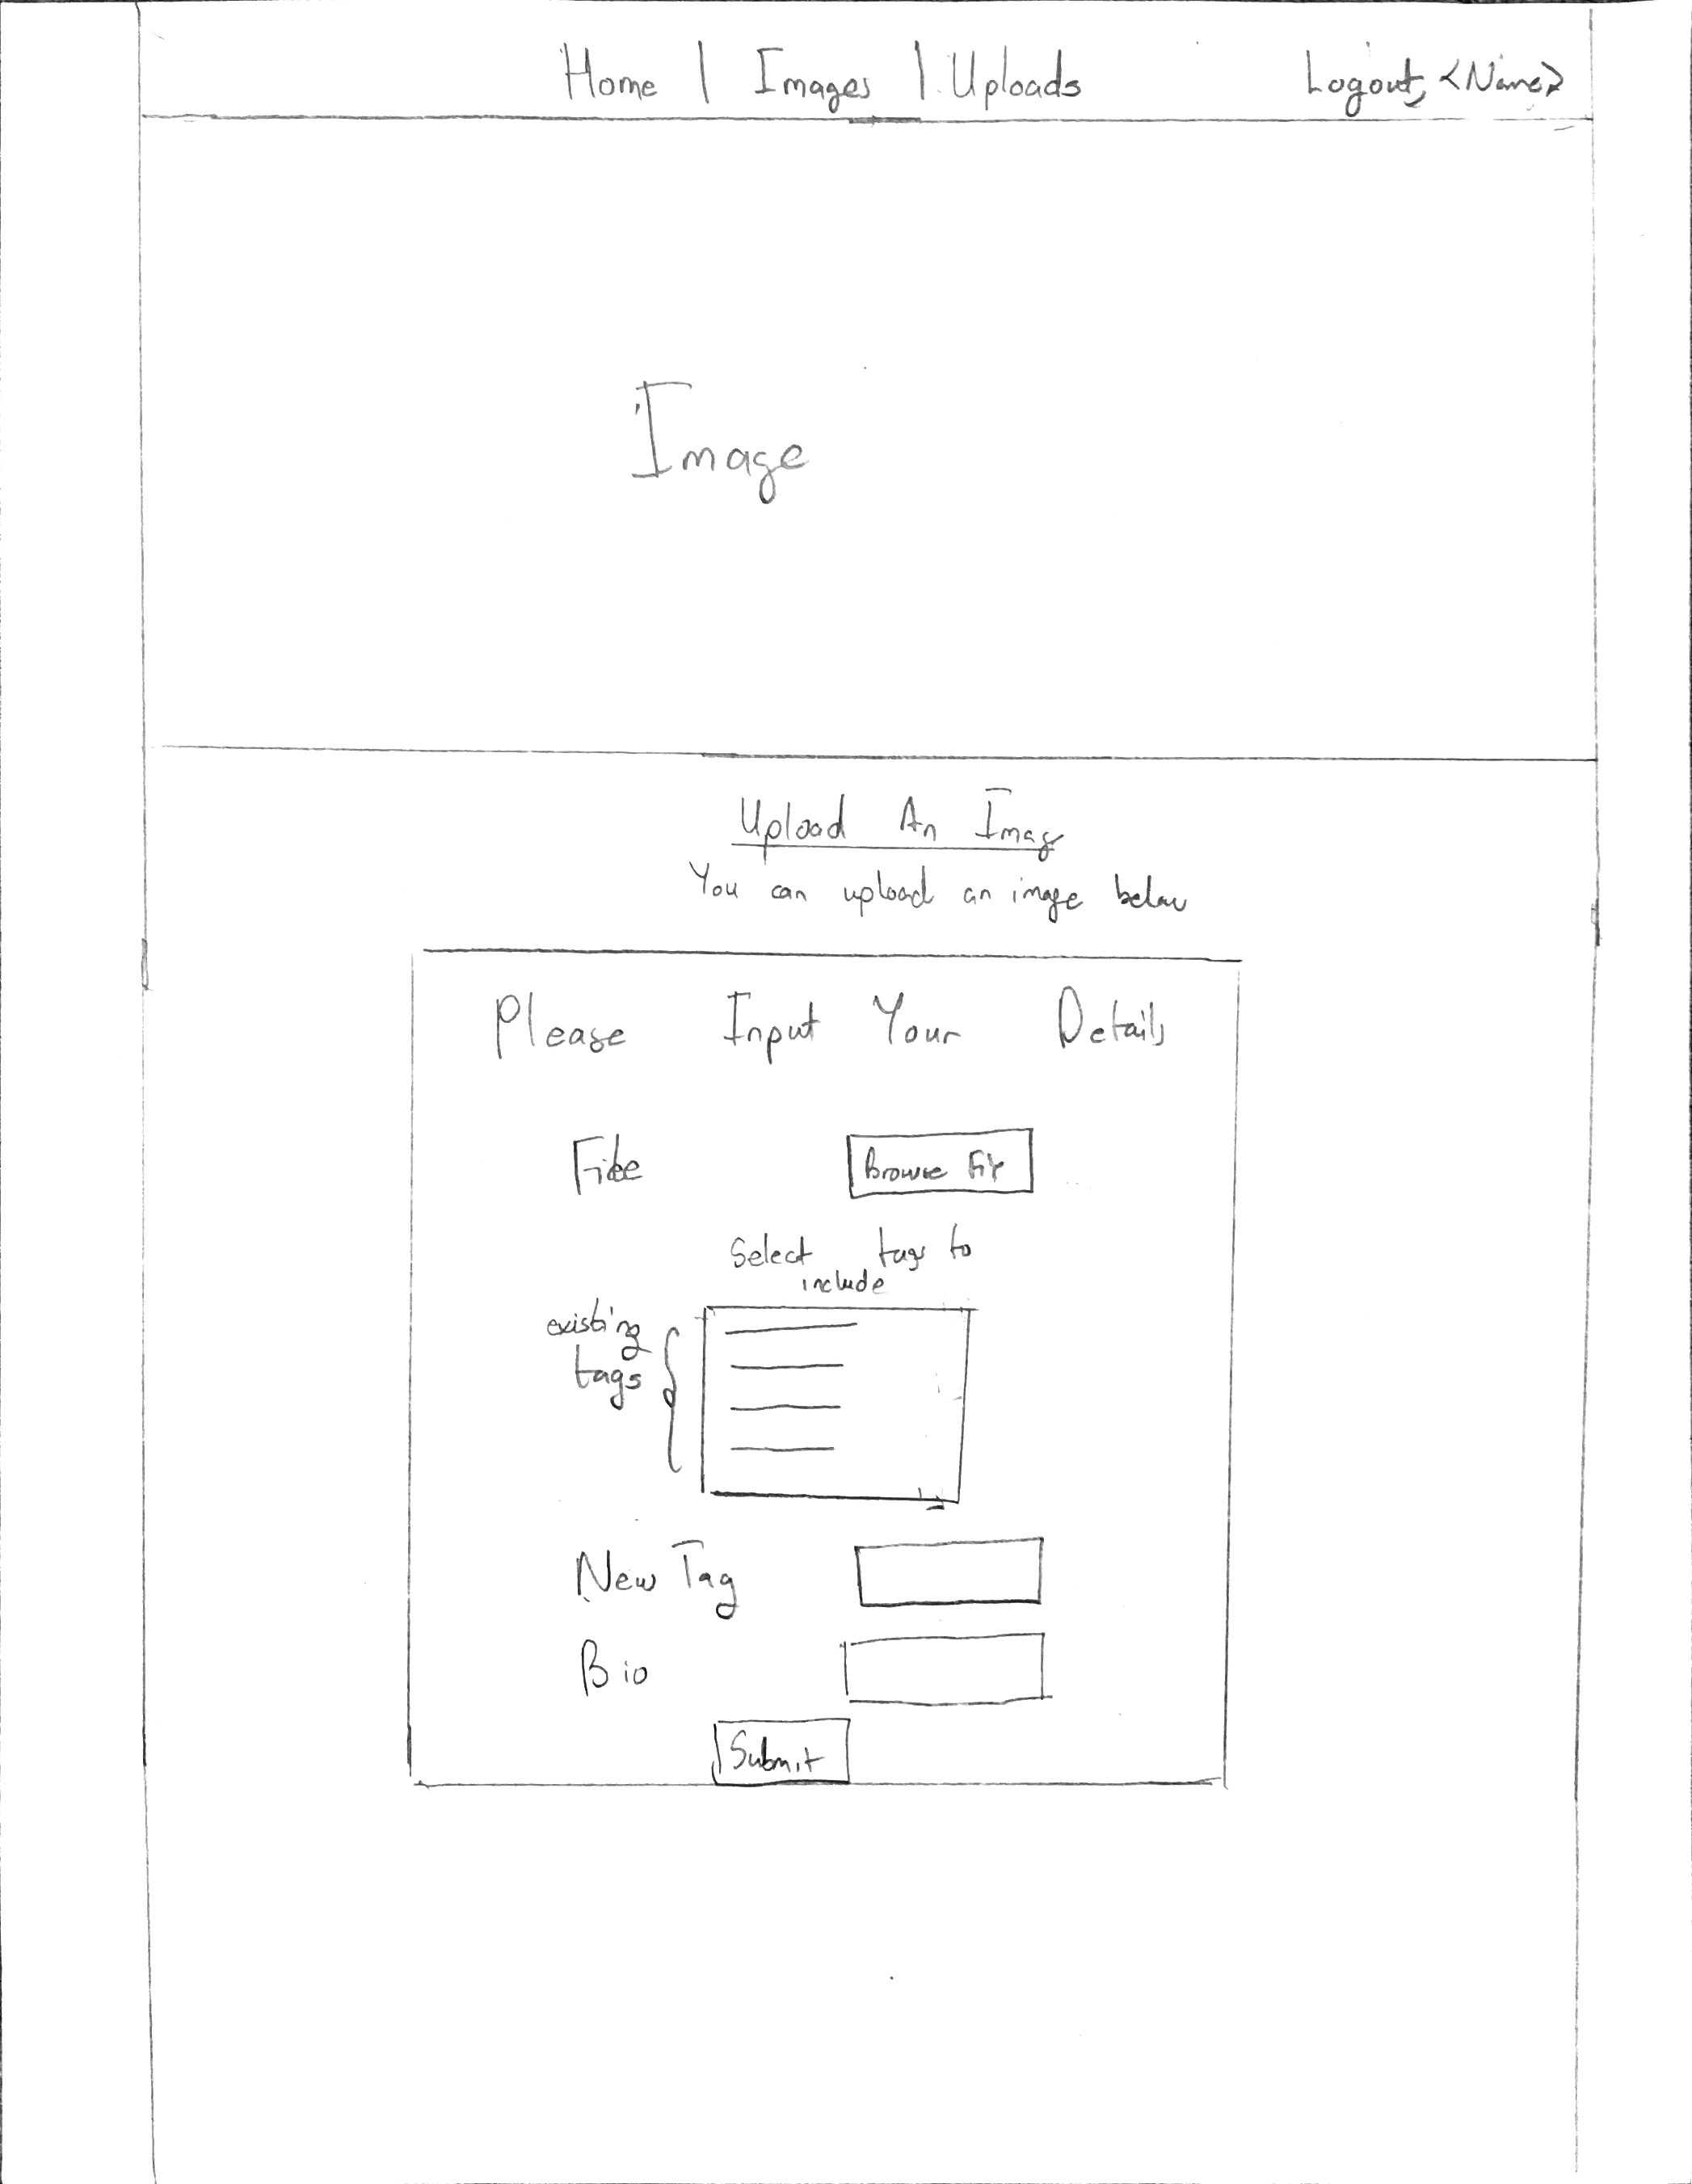 Home | Images | Uploads Logout, <Name>
Image
Upload An Image
You can upload an image below
Please Input Your Details
File Browse File
Select tags to
include
existing
tags
New Tag
Bio
Submit